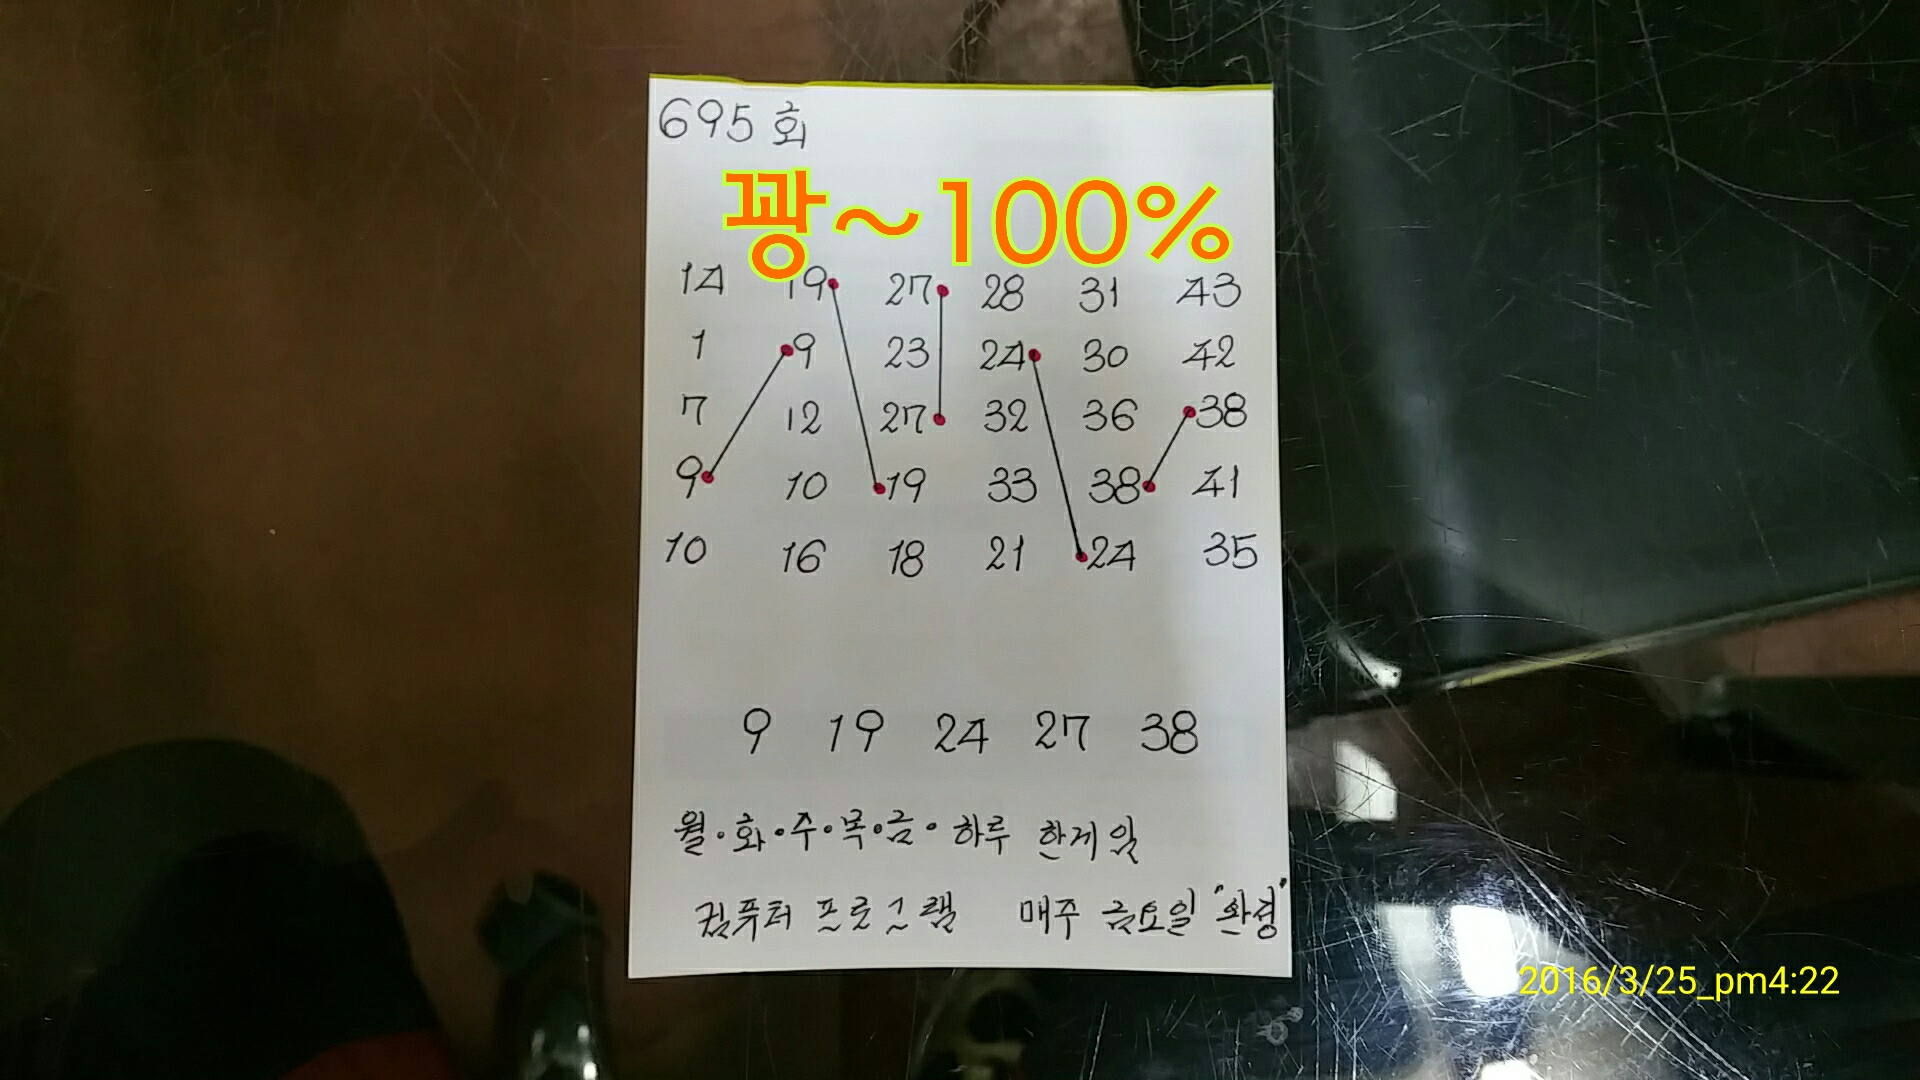 695회
꽝~100%
14 19 27 28 31 43
1 9 23 24 30 42
7 12 27 32 36 38
9 10 19 33 38 41
10 16 18 21 24 35
9 19 24 27 38
월·화·수·목·금· 하루 한게임
컴퓨터 프로그램 매주 금요일 "완성"
2016/3/25_pm4:22